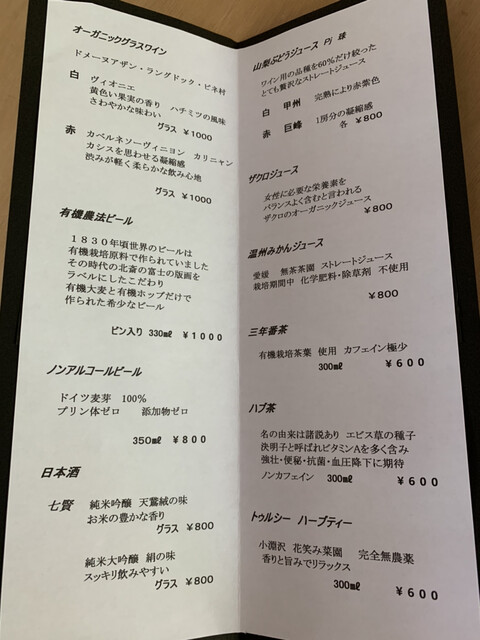 オーガニックグラスワイン
ドメーヌアザン・ラングドック・ピネ村
白 ヴィオニエ
黄色い果実の香り ハチミツの風味
さわやかな味わい
グラス ￥1000
赤 カベルネソーヴィニヨン カリニャン
カシスを思わせる凝縮感
渋みが軽く柔らかな飲み心地
グラス ￥1000
有機農法ビール
１８３０年頃世界のビールは
有機栽培原料で作られていました
その時代の北斎の富士の版画を
ラベルにしたこだわり
有機大麦と有機ホップだけで
作られた希少なビール
ビン入り 330㎖ ￥1000
ノンアルコールビール
ドイツ麦芽 100％
プリン体ゼロ 添加物ゼロ
350㎖ ￥800
日本酒
七賢 純米吟醸 天鵞絨の味
お米の豊かな香り
グラス ￥800
純米大吟醸 絹の味
スッキリ飲みやすい
グラス ￥800
山梨ぶどうジュース Pj 珠
ワイン用の品種を60％だけ絞った
とても贅沢なストレートジュース
白 甲州 完熟により赤紫色
赤 巨峰 1房分の凝縮感
各 ￥800
ザクロジュース
女性に必要な栄養素を
バランスよく含むと言われる
ザクロのオーガニックジュース
￥800
温州みかんジュース
愛媛 無茶茶園 ストレートジュース
栽培期間中 化学肥料・除草剤 不使用
￥800
三年番茶
有機栽培茶葉 使用 カフェイン極少
300㎖ ￥600
ハブ茶
名の由来は諸説あり エビス草の種子
決明子と呼ばれビタミンAを多く含み
強壮・便秘・抗菌・血圧降下に期待
ノンカフェイン 300㎖ ￥600
トゥルシー ハーブティー
小淵沢 花笑み菜園 完全無農薬
香りと旨みでリラックス
300㎖ ￥600